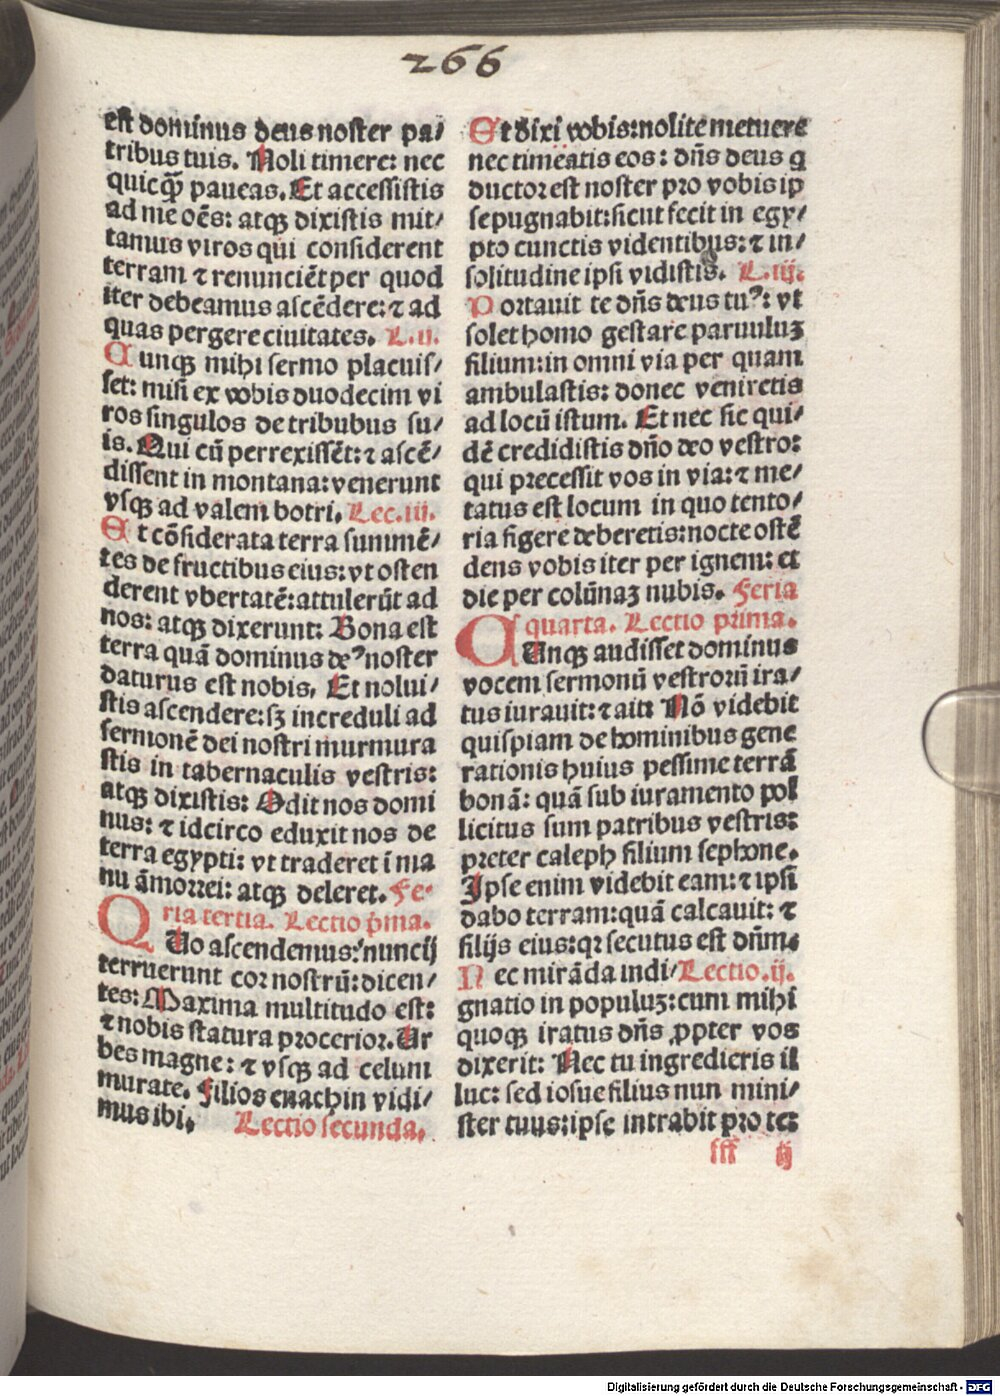 266
est dominus deus noster pa/
tribus tuis. Noli timere: nec
quicq̄ꝫ paueas. Et accessistis
ad me oēs: atqꝫ dixistis mit/
tamus viros qui considerent
terram ⁊ renunciēt per quod
iter debeamus ascēdere: ⁊ ad
quas pergere ciuitates. L.ii.
Cunqꝫ mihi sermo placuis/
set: misi ex vobis duodecim vi
ros singulos de tribubus su/
is. Qui cū perrexissēt: ⁊ ascē/
dissent in montana: venerunt
vsqꝫ ad valem botri. Lec.iii.
Et cōsiderata terra summē/
tes de fructibus eius: vt osten
derent vbertatē: attulerūt ad
nos: atqꝫ dixerunt: Bona est
terra quā dominus deꝰ noster
daturus est nobis. Et nolui/
stis ascendere: sꝫ increduli ad
sermonē dei nostri murmura
stis in tabernaculis vestris:
atqꝫ dixistis: Odit nos domi
nus: ⁊ idcirco eduxit nos de
terra egypti: vt traderet ī ma
nu āmorrei: atqꝫ deleret. Fe-
ria tertia. Lectio p̄ma.
QUo ascendemus: nuncij
terruerunt cor nostrū: dicen/
tes: Maxima multitudo est:
⁊ nobis statura procerior. Ur
bes magne: ⁊ vsqꝫ ad celum
murate. Filios enachin vidi/
mus ibi. Lectio secunda.
Et dixi vobis: nolite metuere
nec timeatis eos: dn̄s deus q
ductor est noster pro vobis ip
se pugnabit: sicut fecit in egy/
pto cunctis videntibus: ⁊ in/
solitudine ipsi vidistis. L.iij.
Portauit te dn̄s deus tuꝰ: vt
solet homo gestare paruuluꝫ
filium: in omni via per quam
ambulastis: donec veniretis
ad locū istum. Et nec sic qui/
dē credidistis dn̄o deo vestro:
qui precessit vos in via: ⁊ me/
tatus est locum in quo tento/
ria figere deberetis: nocte ostē
dens vobis iter per ignem: et
die per colūnaꝫ nubis. Feria
quarta. Lectio prima.
CUnqꝫ audisset dominus
vocem sermonū vestrorū ira/
tus iurauit: ⁊ ait: Nō videbit
quispiam de hominibus gene
rationis huius pessime terrā
bonā: quā sub iuramento pol
licitus sum patribus vestris:
preter caleph filium sephone.
Ipse enim videbit eam: ⁊ ipsi
dabo terram: quā calcauit: ⁊
filijs eius: qꝛ secutus est dn̄m.
Nec mirāda indi/ Lectio.ij.
gnatio in populuꝫ: cum mihi
quoqꝫ iratus dn̄s ꝓpter vos
dixerit: Nec tu ingredieris il
luc: sed iosue filius nun mini/
ster tuus: ipse intrabit pro te:
fff ij
Digitalisierung gefördert durch die Deutsche Forschungsgemeinschaft - DFG